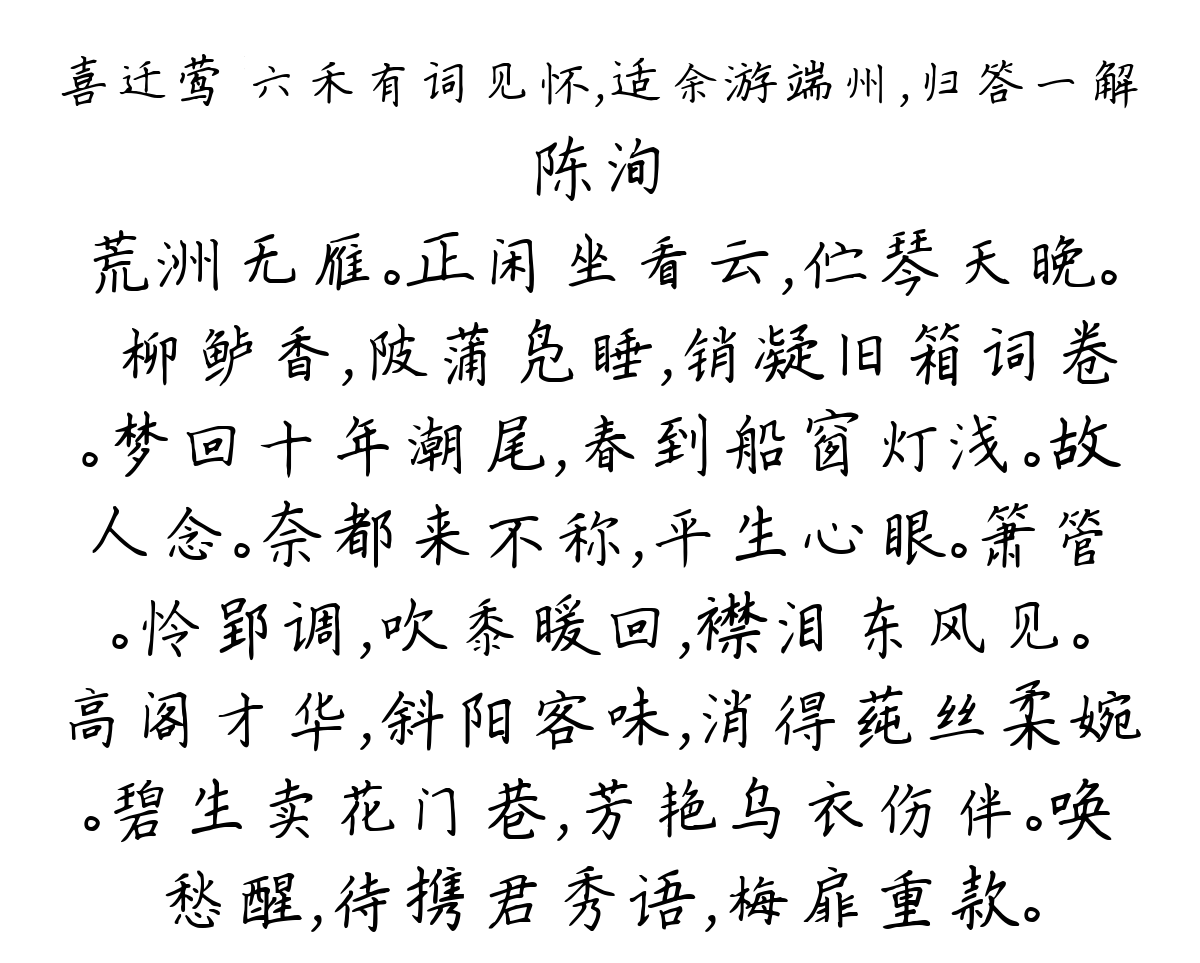 喜迁莺 六禾有词见怀,适余游端州,归答一解
陈洵
荒洲无雁。正闲坐看云,伫琴天晚。
柳鲈香,陂蒲凫睡,销凝旧箱词卷
。梦回十年潮尾,春到船窗灯浅。故
人念。奈都来不称,平生心眼。箫管
。怜郢调,吹黍暖回,襟泪东风见。
高阁才华,斜阳客味,消得莼丝柔婉
。碧生卖花门巷,芳艳乌衣伤伴。唤
愁醒,待携君秀语,梅扉重款。